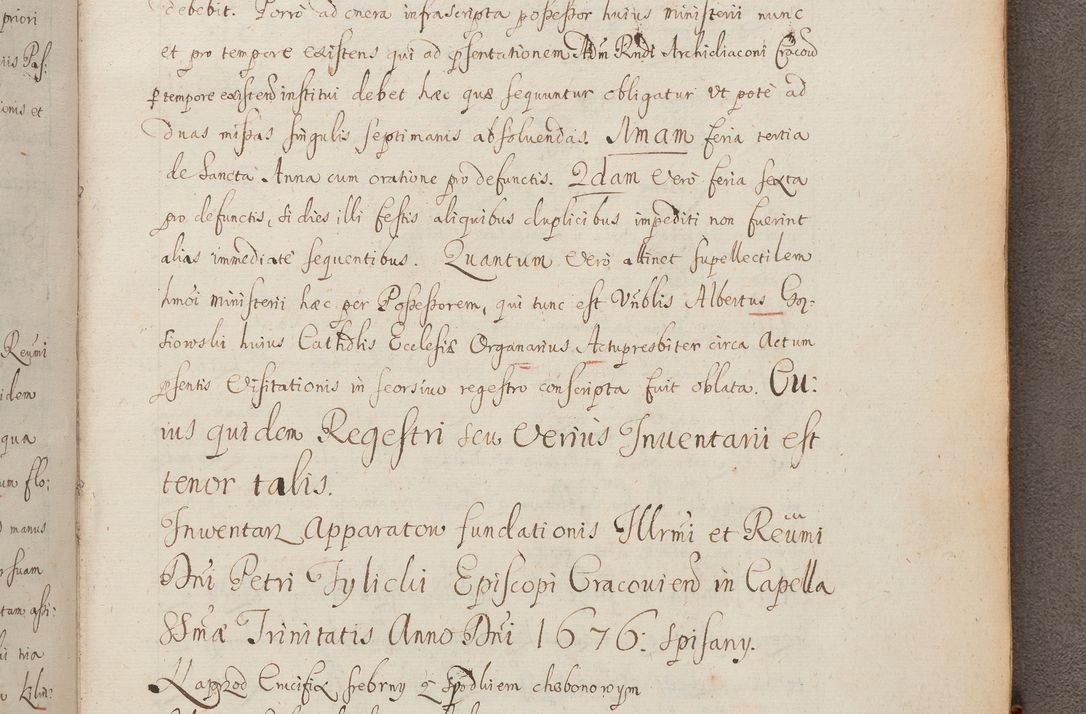 debebit. Porro ad onera infrascripta possessor huius ministerii nunc
et pro tempore existens qui ad psentationem Adm Rndi Archidiaconi Cracovien
p tempore existen institui debet hæc quæ sequuntur obligatur ut pote ad
duas missas singulis septimanis absoluendas. Amam feria tertia
de Sancta Anna cum oratione pro defunctis. 2dam vero feria sexta
pro defunctis, si dies illi festis aliquibus duplicibus impediti non fuerint
alias immediate sequentibus. Quantum vero attinet supellectilem
hmoi ministerii hæc per Possessorem, qui tunc est Vnblis Albertus Gor:
siowski huius Cathdlis Ecclesiæ Organarius Actupresbiter circa Actum
psentis Visitationis in seorsivo regestro conscripta fuit oblata. Cu:
ius quidem Regestri seu verius Inventarii est
tenor talis.
Inwentarz Apparatow fundationis Illrmi et Reumi
Dni Petri Tylicki Episcopi Cracovien in Capella
SSmæ Trinitatis Anno Dni 1676: spisany.
Naprzod Crucifix srebrny z spodkiem chebonowym
priori
ionis et
Reumi
idem
qua
um flo:
manus
suam
tum assi: